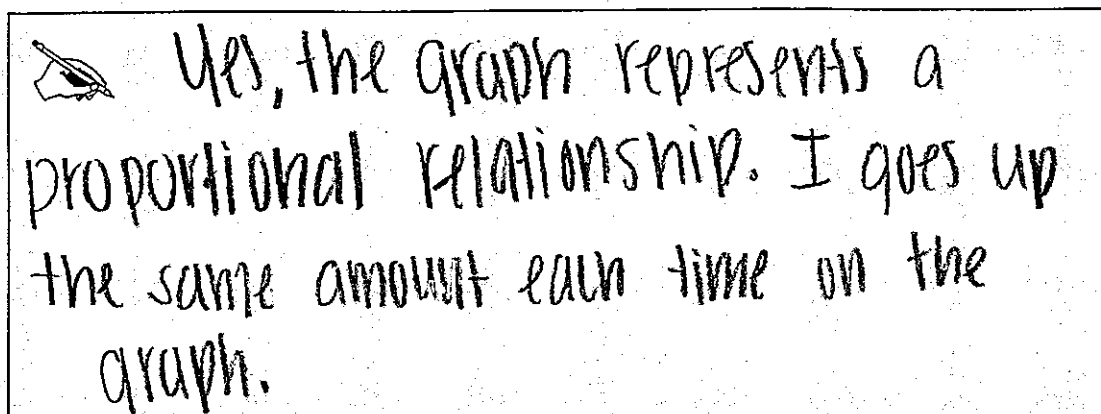 Yes, the graph represents a
proportional relationship. I goes up
the same amount each time on the
graph.